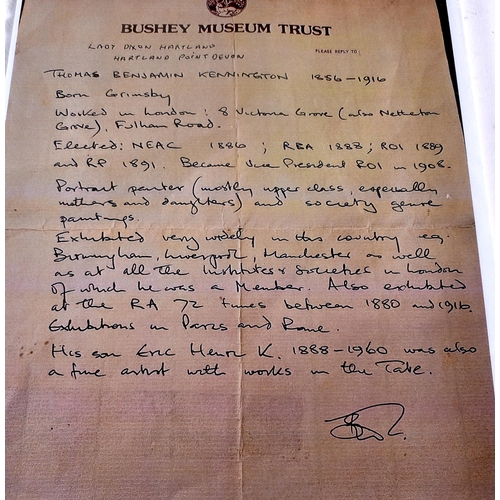 BUSHEY MUSEUM TRUST
LADY DIXON HARTLAND
HARTLAND POINT DEVON
PLEASE REPLY TO:
THOMAS BENJAMIN KENNINGTON 1856-1916
Born Grimsby
Worked in London: 8 Victoria Grove (also Netherton
Grove), Fulham Road.
Elected: NEAC 1886 ; RBA 1888; ROI 1889
and RP 1891. Became Vice President ROI in 1908.
Portrait painter (mostly upper class, especially
mothers and daughters) and society genre
paintings.
Exhibited very widely in this country eg.
Birmingham, Liverpool, Manchester as well
as at all the Institutes & Societies in London
of which he was a Member. Also exhibited
at the RA 72 times between 1880 and 1916.
Exhibitions in Paris and Rome.
His son Eric Henri K. 1888-1960 was also
a fine artist with works in the Tate.